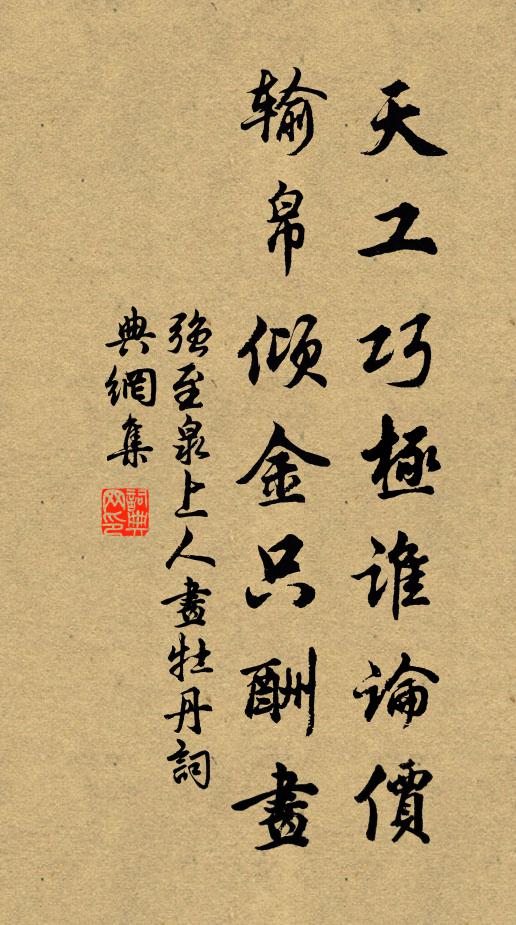 天工巧極誰論價
輸帛傾金只酬畫
強至泉上人畫牡丹詞
典網集
詞典網印